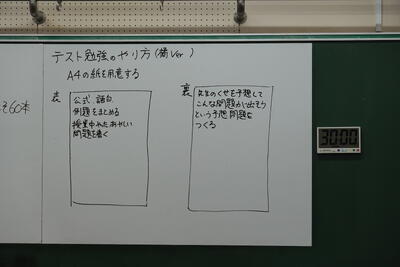 テスト勉強のやり方(橘Ver)
A4の紙を用意する
表
公式、語句
例題をまとめる
授業中やったあやしい
問題を書く
裏
先生のくせを予想して
こんな問題が出そう
という予想問題を
つくる
60本
30:00